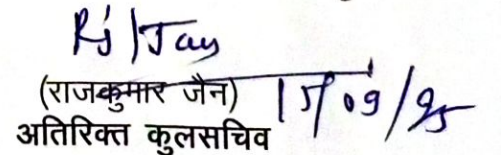 (राजकुमार जैन) 15/09/25
अतिरिक्त कुलसचिव